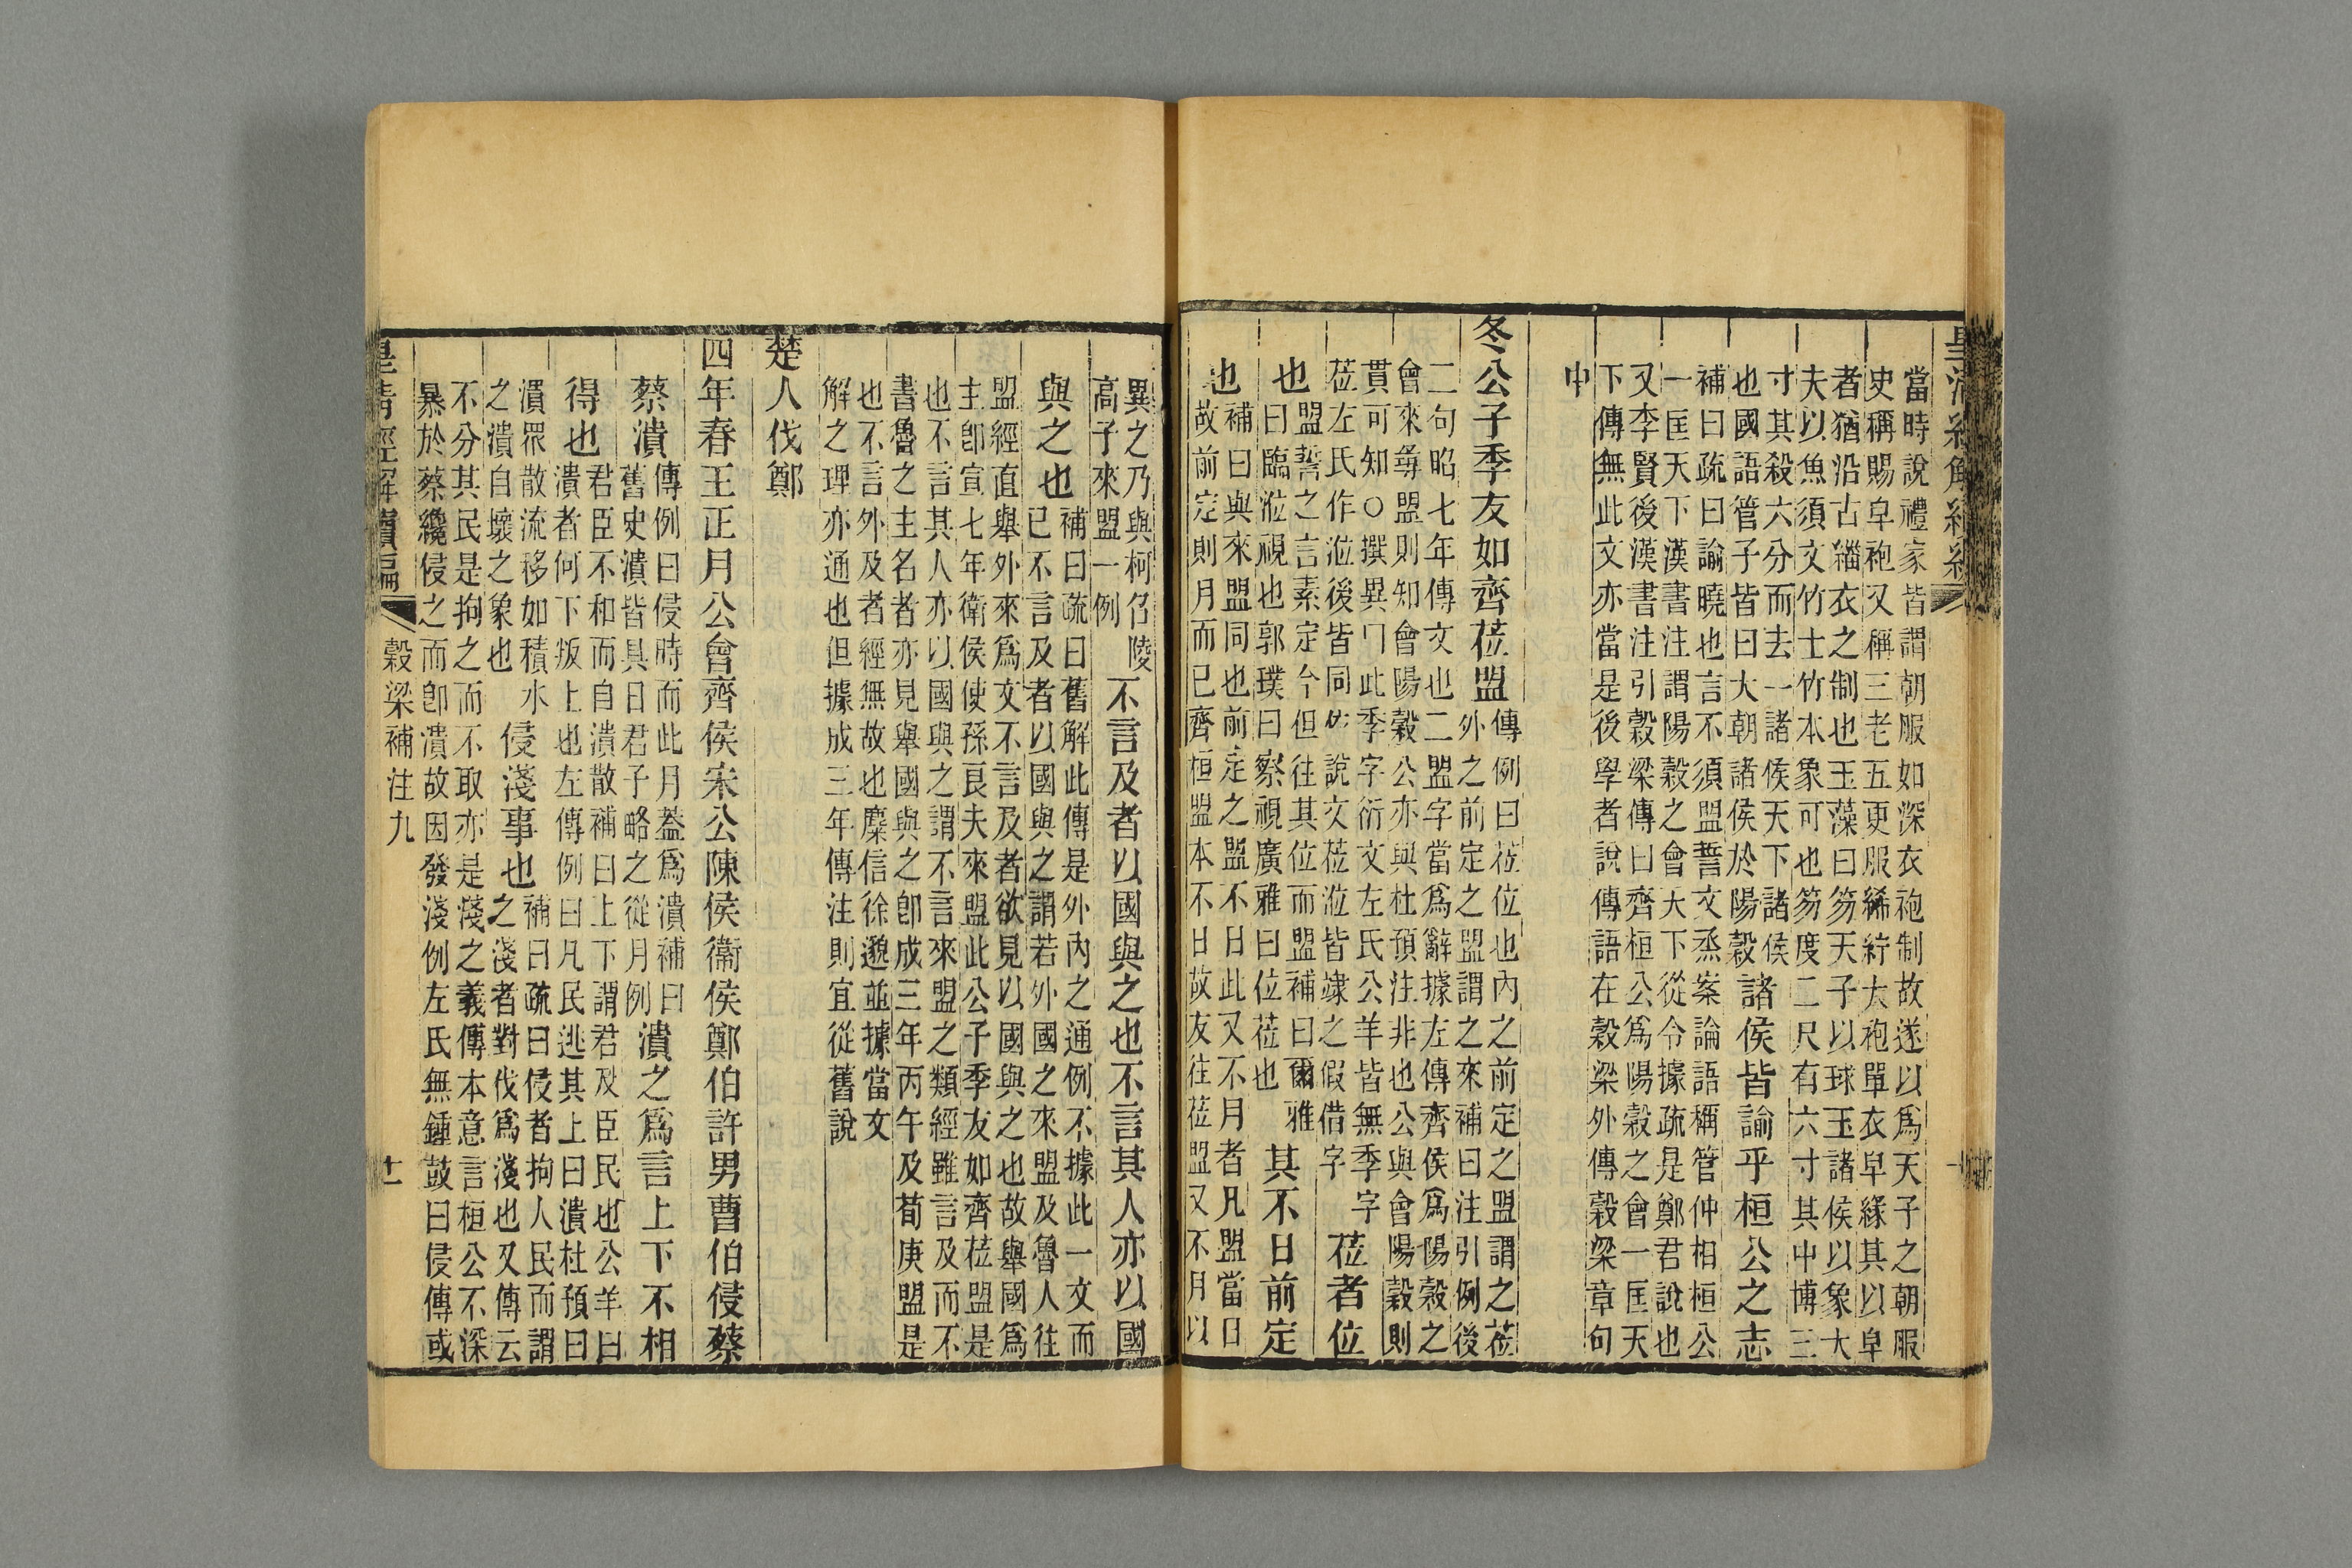 皇清經解續編
當時說禮家皆謂朝服如深衣袍制故遂以爲天子之朝服
史稱賜皁袍又稱三老五更服絺紵大袍單衣皁緣其以皁
者猶沿古緇衣之制也玉藻曰笏天子以球玉諸侯以象大
夫以魚須文竹士竹本象可也笏度二尺有六寸其中博三
寸其殺六分而去一諸侯天下諸侯
也國語管子皆曰大朝諸侯於陽穀
諸侯皆諭乎桓公之志
補曰疏曰諭曉也言不須盟誓文烝案論語稱管仲相桓公
一匡天下漢書注謂陽穀之會大下從令據疏是鄭君說也
又李賢後漢書注引穀梁傳曰齊桓公爲陽穀之會一匡天
下傳無此文亦當是後學者說傳語在穀梁外傳穀梁章句
中
冬公子季友如齊莅盟
傳例曰莅位也內之前定之盟謂之莅
外之前定之盟謂之來補曰注引例後
二句昭七年傳文也二盟字當爲辭據左傳齊侯爲陽穀之
會來尋盟則知會陽穀公亦與杜預注非也公與會陽穀則
貫可知○撰異曰此季字衍文左氏公羊皆無季字
莅左氏作涖後皆同 說文莅涖皆竦之假借字
莅者位
也
盟誓之言素定今但往其位而盟補曰爾雅
曰臨涖視也郭璞曰察視廣雅曰位莅也
其不日前定
也
補曰與來盟同也前定之盟不日此又不月者凡盟當日
故前定則月而已齊桓盟本不日故友往莅盟又不月以
異之乃與柯召陵
高子來盟一例
不言及者以國與之也不言其人亦以國
與之也
補曰疏曰舊解此傳是外內之通例不據此一文而
已不言及者以國與之謂若外國之來盟及魯人往
盟經直舉外來爲文不言及者欲見以國與之也故舉國爲
主卽宣七年衛侯使孫良夫來盟此公子季友如齊莅盟是
也不言其人亦以國與之謂不言來盟之類經雖言及而不
書魯之主名者亦見舉國與之卽成三年丙午及荀庚盟是
也不言外及者經無故也麋信徐邈並據當文
解之理亦通也但據成三年傳注則宜從舊說
楚人伐鄭
四年春王正月公會齊侯宋公陳侯衞侯鄭伯許男曹伯侵蔡
蔡潰
傳例曰侵時而此月蓋爲潰補曰
舊史潰皆具日君子略之從月例
潰之爲言上下不相
得也
君臣不和而自潰散補曰上下謂君及臣民也公羊曰
潰者何下叛上也左傳例曰凡民逃其上曰潰杜預曰
潰眾散流移如積水
之潰自壞之象也
侵淺事也
補曰疏曰侵者拘人民而謂
之淺者對伐爲淺也又傳云
不分其民是拘之而不取亦是淺之義傳本意言桓公不深
暴於蔡纔侵之而卽潰故因發淺例左氏無鍾鼓曰侵傳或
皇清經解續編
穀梁補注九
十一